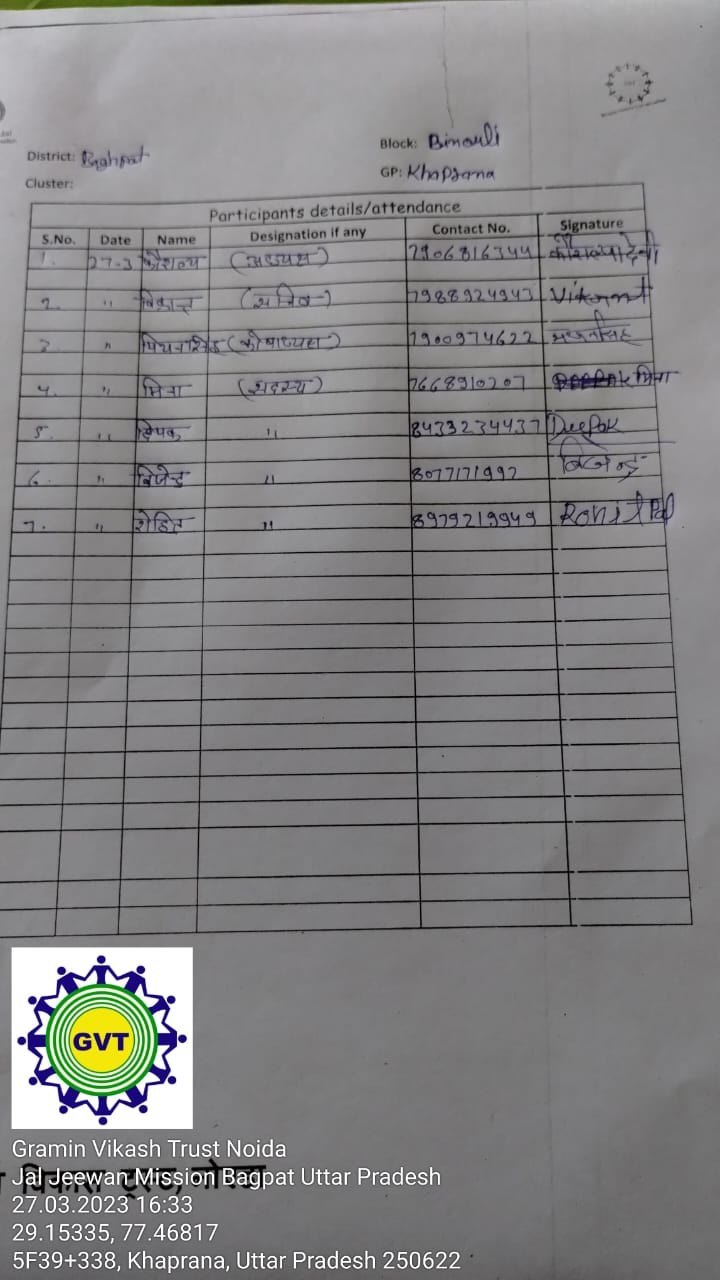 District: Baghpat
Block: Binouli
Cluster:
GP: Khaprana
Participants details/attendance
S.No. Date Name Designation if any Contact No. Signature
1. 27-3 कौशल्य (अध्यक्ष) 7906816344 कौशल्या देवी
2. " विक्रान्त (सचिव) 7988924943 Vikrant
3. " (कोषाध्यक्ष) 7900974622
4. " मिना (सदस्य) 7668910207 DEEPAK मिना
5. " दिपक " 8433234437 Deepak
6. " विजेन्द्र " 8077171992 विजेन्द्र
7. " रोहित " 8979219949 Rohit Pal
GVT
Gramin Vikash Trust Noida
विकास ट्रस्ट, नोएडा
Jal Jeewan Mission Bagpat Uttar Pradesh
27.03.2023 16:33
29.15335, 77.46817
5F39+338, Khaprana, Uttar Pradesh 250622